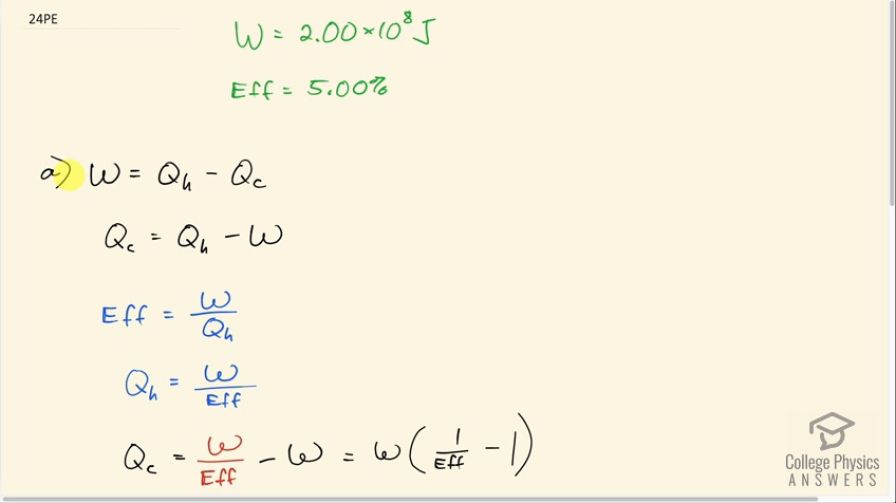 24PE
W = 2.00×10⁸ J
Eff = 5.00%
a) W = Qₕ − Q꜀
Q꜀ = Qₕ − W
Eff = W/Qₕ
Qₕ = W/Eff
Q꜀ = W/Eff − W = W(1/Eff − 1)
College Physics
ANSWERS